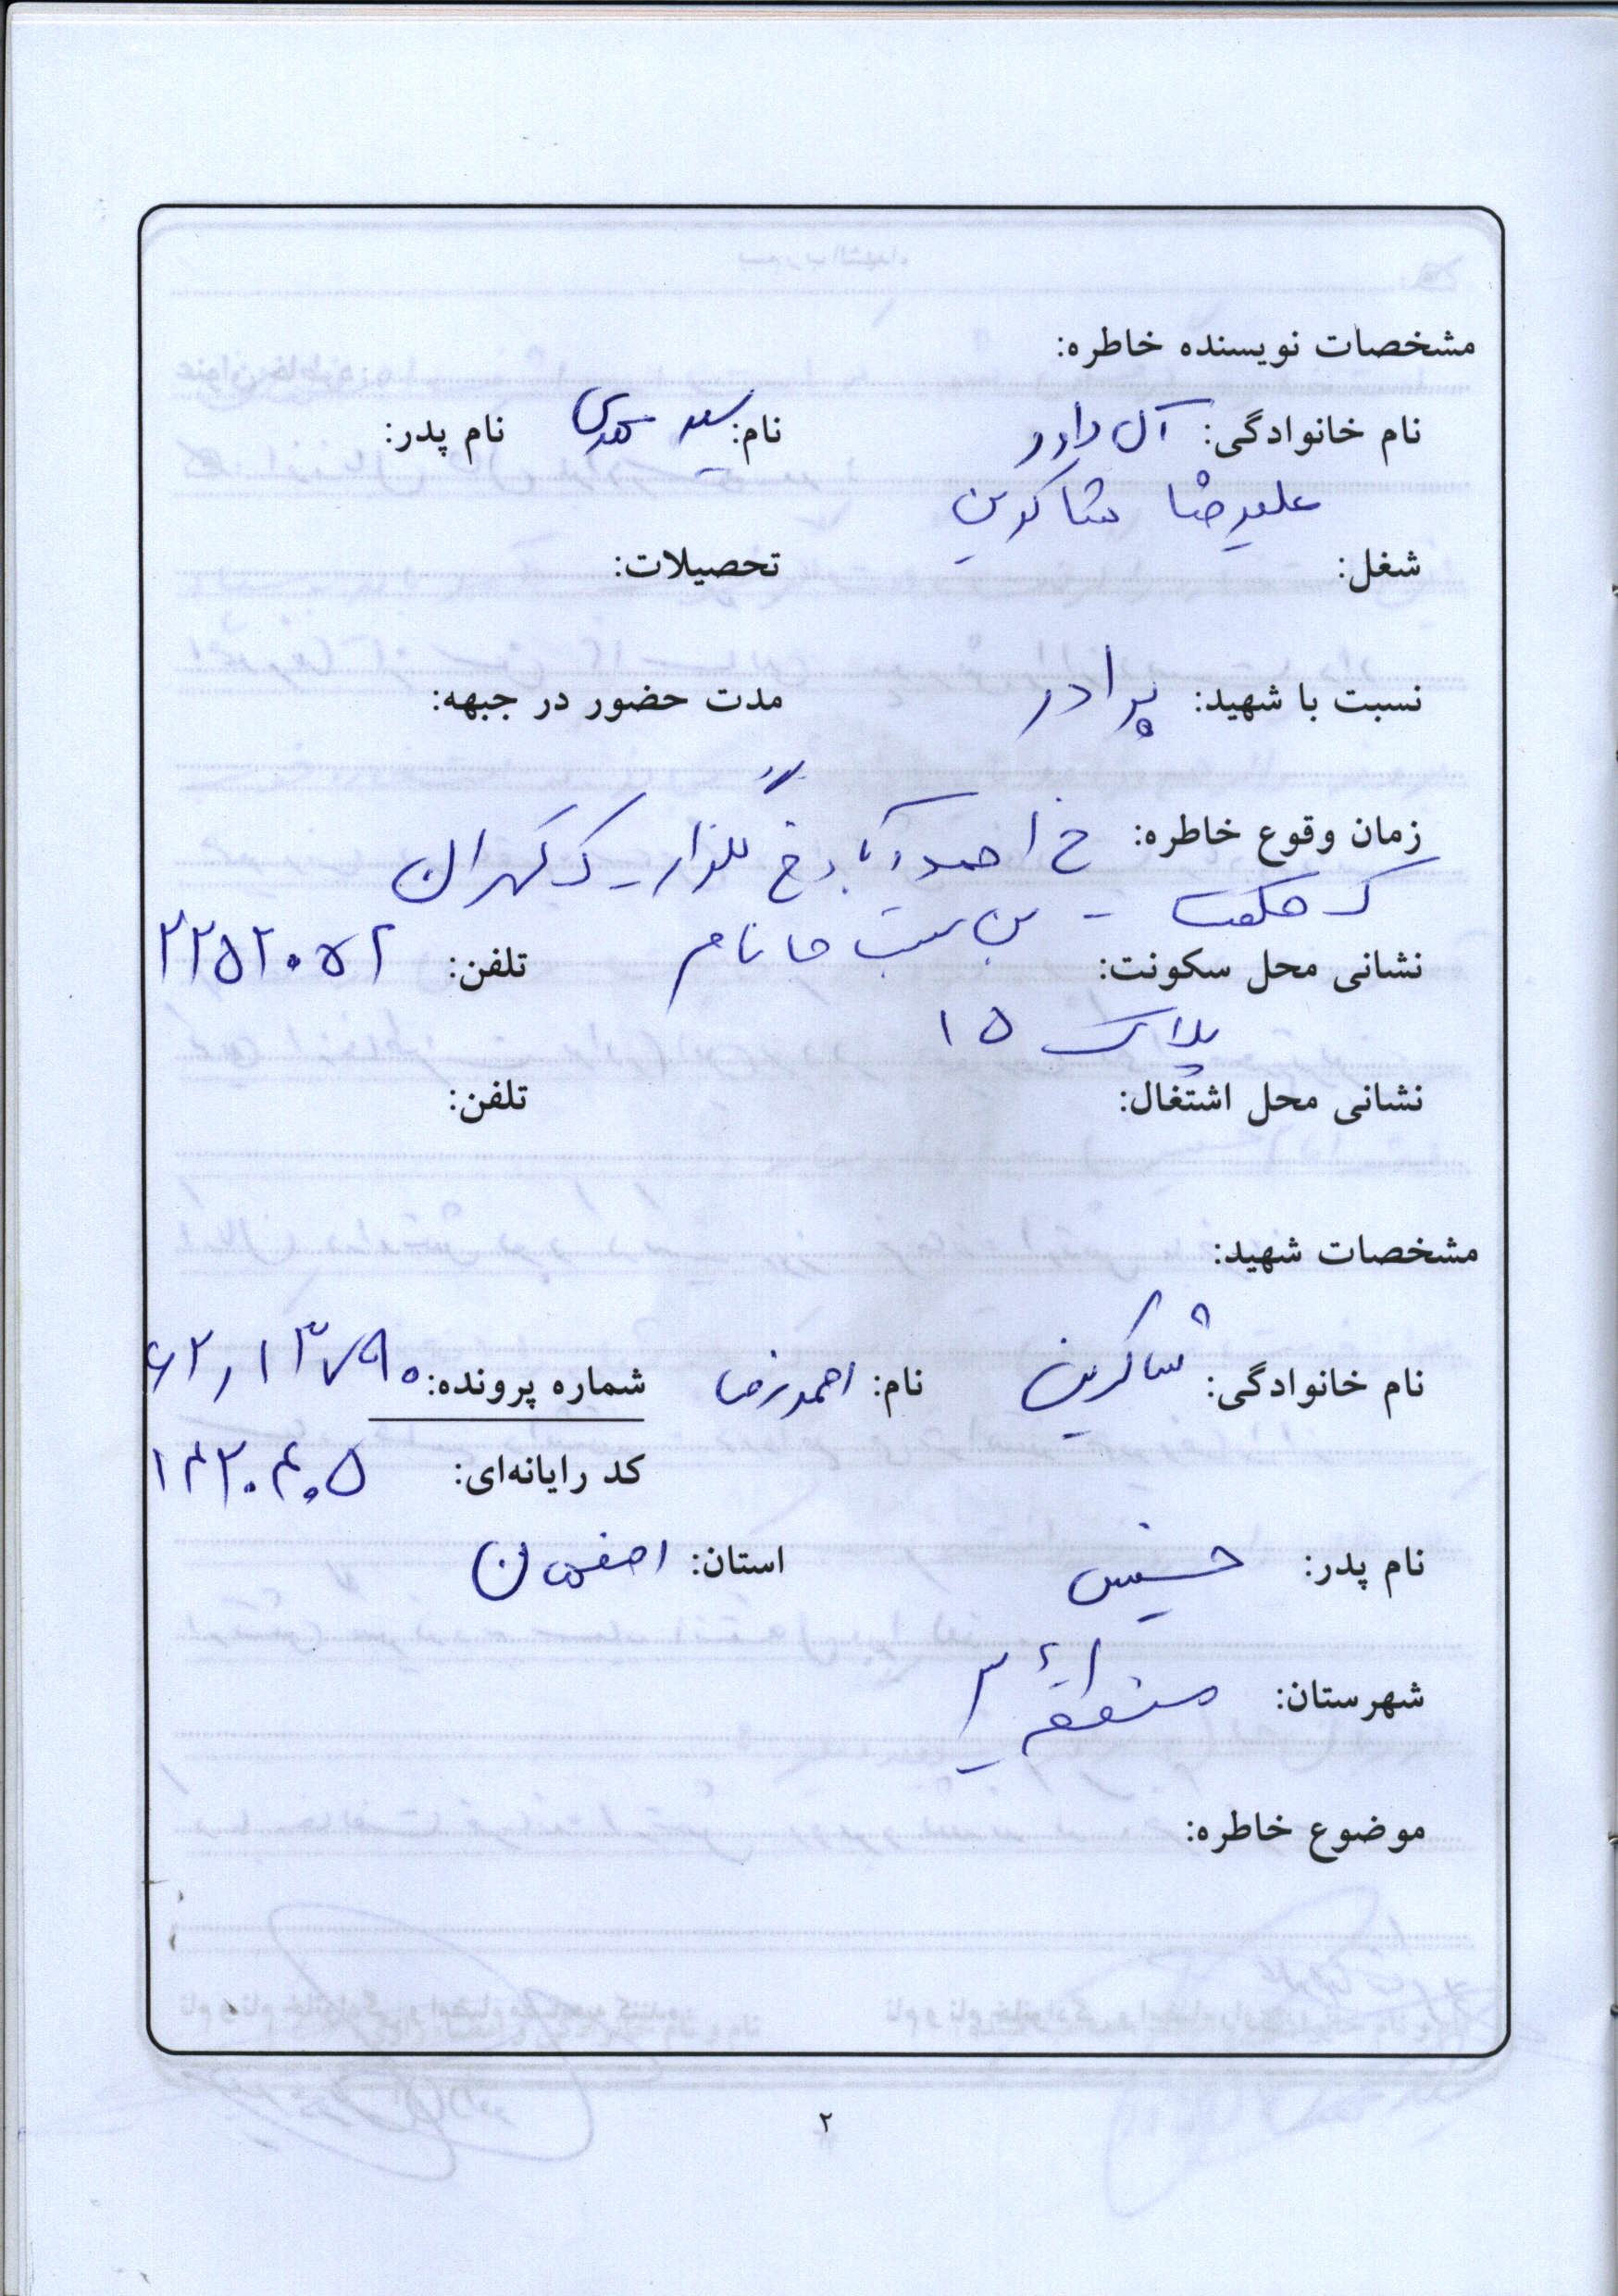 مشخصات نویسنده خاطره:
نام خانوادگی: آل داود نام: سید مهدی نام پدر:
علیرضا شاکرین
شغل: تحصیلات:
نسبت با شهید: برادر مدت حضور در جبهه:
زمان وقوع خاطره: خ احمدآباد خ گلزار ک
ک حکمت - بن بست
نشانی محل سکونت: تلفن: ۲۲۵۲۰۵۲
پلاک ۱۵
نشانی محل اشتغال: تلفن:
مشخصات شهید:
نام خانوادگی: شاکرین نام: احمدرضا شماره پرونده: ۶۲,۱۳۷۹۰
کد رایانه‌ای: ۱۴۲۰۴۰۵
نام پدر: حسین استان: اصفهان
شهرستان: منطقه ۳
موضوع خاطره:
۲